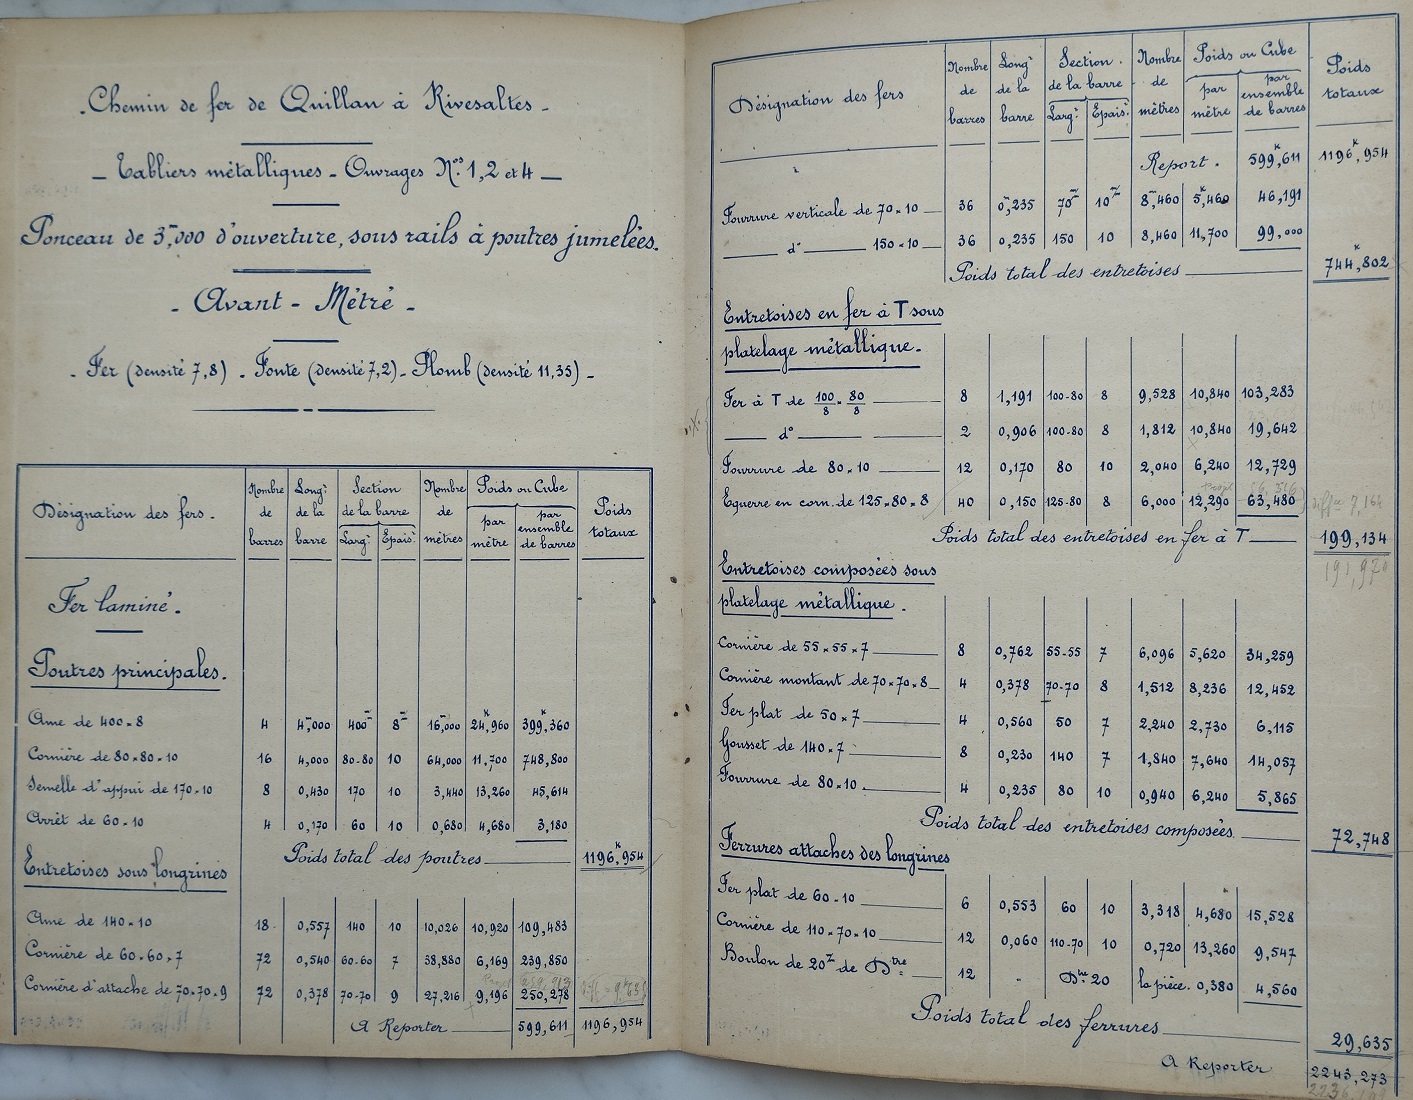 Chemin de fer de Quillan à Rivesaltes
Tabliers métalliques - Ouvrages Nos 1, 2 et 4
Ponceau de 3m,000 d'ouverture, sous rails à poutres jumelées.
Avant - Métré
Fer (densité 7,8) - Fonte (densité 7,2) - Plomb (densité 11,35)
Désignation des fers. Nombre de barres Longr de la barre Section de la barre Largr Épaisr Nombre de mètres Poids ou Cube par mètre par ensemble de barres Poids totaux
Fer laminé.
Poutres principales.
Ame de 400×8 4 4m,000 400m 8m 16m,000 24k,960 399k,360
Cornière de 80×80×10 16 4,000 80-80 10 64,000 11,700 748,800
Semelle d'appui de 170×10 8 0,430 170 10 3,440 13,260 45,614
Arrêt de 60×10 4 0,170 60 10 0,680 4,680 3,180
Poids total des poutres 1196k,954
Entretoises sous longrines
Ame de 140×10 18 0,557 140 10 10,026 10,920 109,483
Cornière de 60×60×7 72 0,540 60-60 7 38,880 6,169 239,850
Cornière d'attache de 70×70×9 72 0,378 70-70 9 27,216 9,196 250,278
A Reporter 599,611 1196,954
Désignation des fers Nombre de barres Longr de la barre Section de la barre Largr Épaisr Nombre de mètres Poids ou Cube par mètre par ensemble de barres Poids totaux
Report. 599k,611 1196k,954
Fourrure verticale de 70×10 36 0m,235 70m 10m 8m,460 5k,460 46,191
do 150×10 36 0,235 150 10 8,460 11,700 99,000
Poids total des entretoises 744k,802
Entretoises en fer à T sous
platelage métallique.
Fer à T de 100/8 × 80/8 8 1,191 100-80 8 9,528 10,840 103,283
do 2 0,906 100-80 8 1,812 10,840 19,642
Fourrure de 80×10 12 0,170 80 10 2,040 6,240 12,729
Equerre en corn. de 125×80×8 40 0,150 125-80 8 6,000 12,290 63,480
Poids total des entretoises en fer à T 199,134
191,970
Entretoises composées sous
platelage métallique.
Cornière de 55×55×7 8 0,762 55-55 7 6,096 5,620 34,259
Cornière montant de 70×70×8 4 0,378 70-70 8 1,512 8,236 12,452
Fer plat de 50×7 4 0,560 50 7 2,240 2,730 6,115
Gousset de 140×7 8 0,230 140 7 1,840 7,640 14,057
Fourrure de 80×10 4 0,235 80 10 0,940 6,240 5,865
Poids total des entretoises composées 72,748
Ferrures attaches des longrines
Fer plat de 60×10 6 0,553 60 10 3,318 4,680 15,528
Cornière de 110×70×10 12 0,060 110-70 10 0,720 13,260 9,547
Boulon de 20m de Dtre 12 " Dtre 20 la pièce. 0,380 4,560
Poids total des ferrures 29,635
A Reporter 2243,273